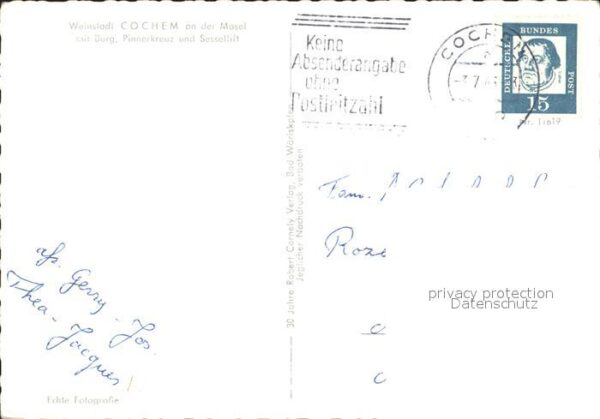 Weinstadt COCHEM an der Mosel
mit Burg, Pinnerkreuz und Sessellift
Keine
Absenderangabe
ohne
Postleitzahl
COCHEM
DEUTSCHE
BUNDES
POST
15
30 Jahre Robert Cornely Verlag, Bad
Jeglicher Nachdruck verboten
Fam.
Roze
privacy protection
Datenschutz
afs. Gerry - Jos.
Thea - Jacques!
Echte Fotografie